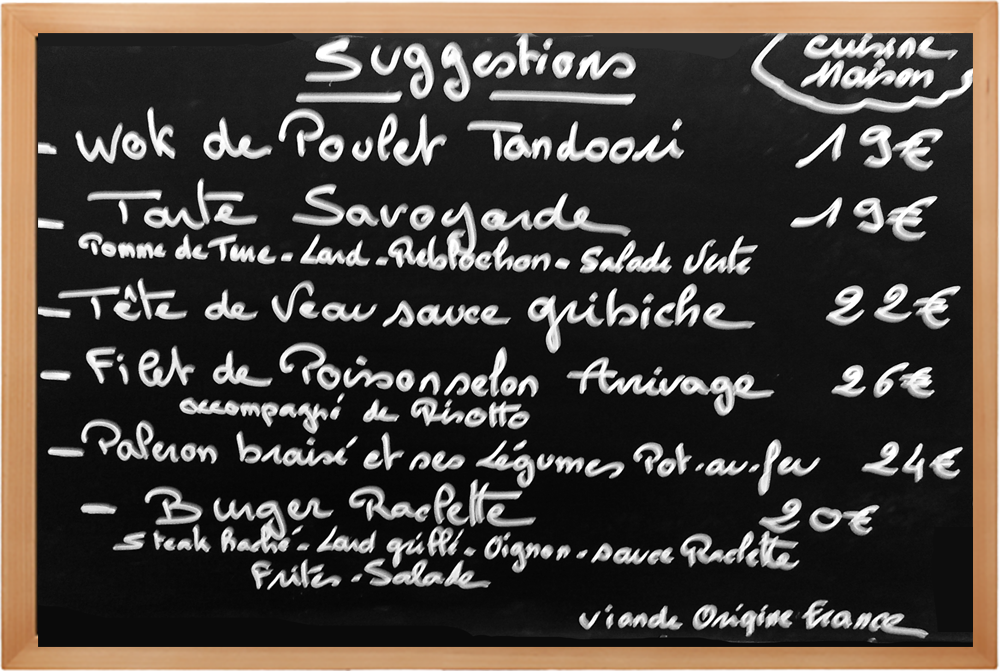 Suggestions
cuisine
Maison
- Wok de Poulet Tandoori 19€
- Tarte Savoyarde 19€
Pomme de Terre - Lard - Reblochon - Salade Verte
- Tête de Veau sauce gribiche 22€
- Filet de Poisson selon Arrivage 26€
accompagné de Risotto
- Paleron braisé et ses Légumes Pot-au-feu 24€
- Burger Raclette 20€
Steak haché - Lard grillé - Oignon - sauce Raclette
Frites - Salade
viande Origine France